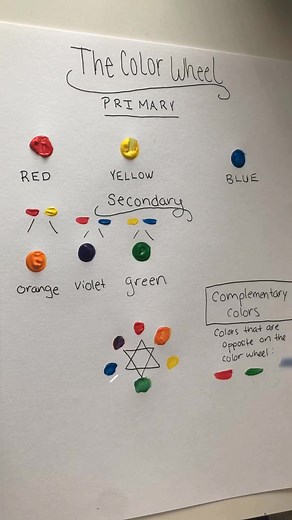 The Color Wheel
PRIMARY
RED YELLOW BLUE
Secondary
orange violet green
Complementary
Colors
Colors that are
opposite on the
color wheel: